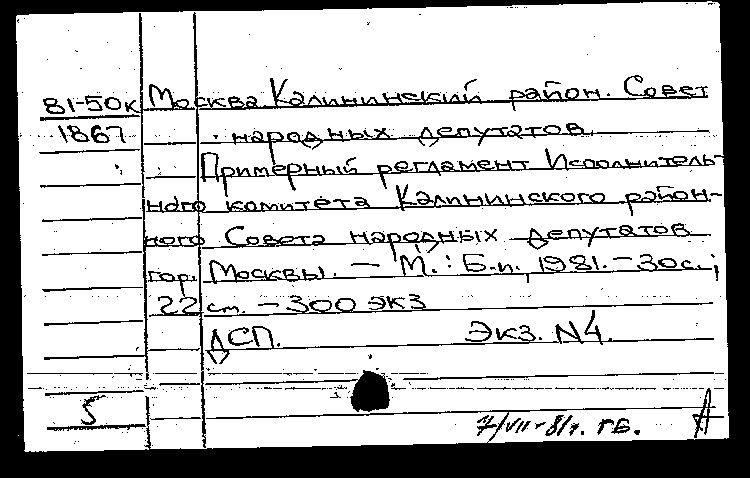 81-50к Москва Калининский район. Совет
1867 народных депутатов.
Примерный регламент Исполнитель-
ного комитета Калининского район-
ного Совета народных депутатов
гор. Москвы. – М.: Б.и., 1981. – 30 с.;
22 см. – 300 экз
ДСП. Экз. N4.
5
7/VII-81г. ГБ. А